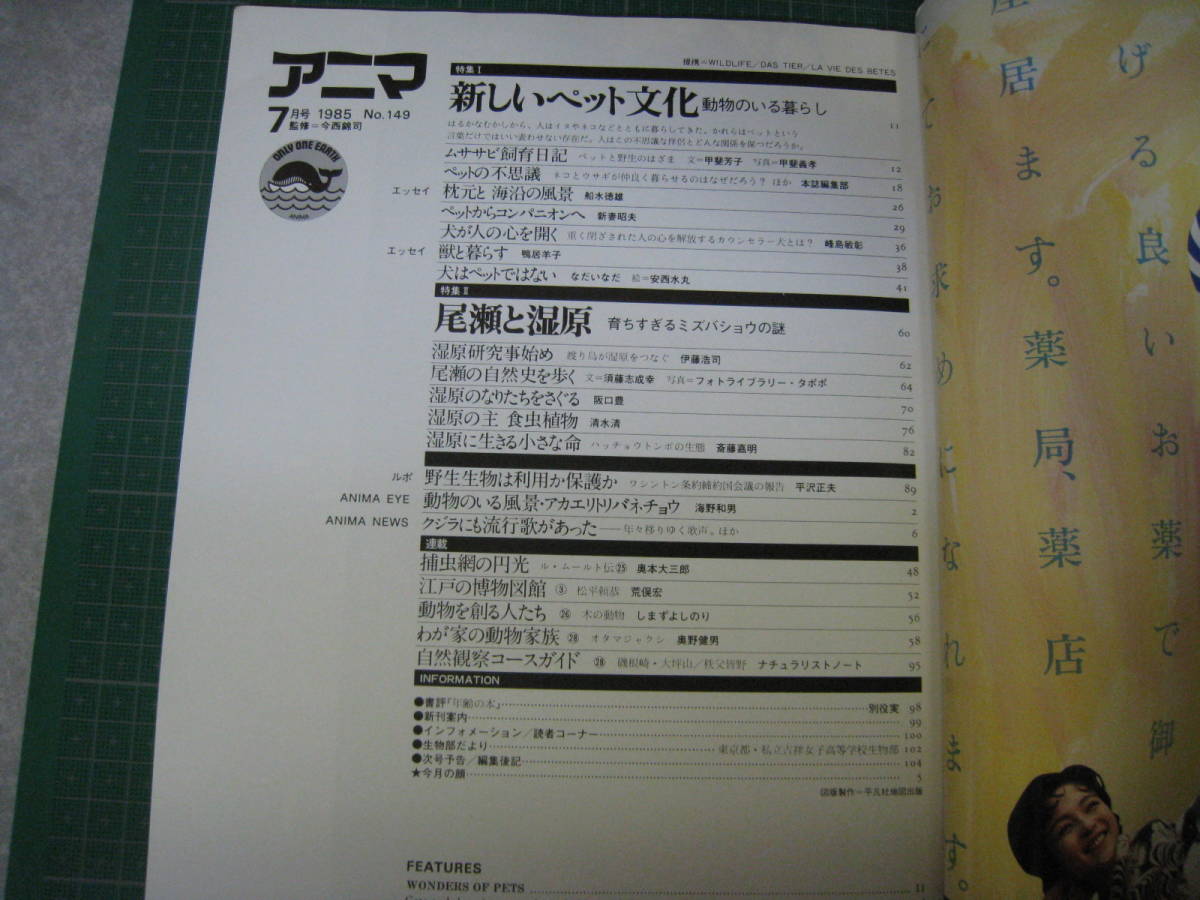 アニマ
7月号 1985 No.149
監修=今西錦司
ONLY ONE EARTH
ANIMA
提携=WILDLIFE/DAS TIER/LA VIE DES BETES
特集Ⅰ
新しいペット文化 動物のいる暮らし 11
はるかなむかしから、人はイヌやネコなどとともに暮らしてきた。かれらはペットという
言葉だけではいい表わせない存在だ。人はこの不思議な伴侶とどんな関係を保つだろうか。
ムササビ飼育日記 ペットと野生のはざま 文=甲斐芳子 写真=甲斐義孝 12
ペットの不思議 ネコとウサギが仲良く暮らせるのはなぜだろう? ほか 本誌編集部 18
エッセイ 枕元と海沿の風景 船水徳雄 26
ペットからコンパニオンへ 新妻昭夫 29
犬が人の心を開く 重く閉ざされた人の心を解放するカウンセラー犬とは? 峰島敏彰 36
エッセイ 獣と暮らす 鴨居羊子 38
犬はペットではない なだいなだ 絵=安西水丸 41
特集Ⅱ
尾瀬と湿原 育ちすぎるミズバショウの謎 60
湿原研究事始め 渡り鳥が湿原をつなぐ 伊藤浩司 62
尾瀬の自然史を歩く 文=須藤志成幸 写真=フォトライブラリー・タポポ 64
湿原のなりたちをさぐる 阪口豊 70
湿原の主 食虫植物 清水清 76
湿原に生きる小さな命 ハッチョウトンボの生態 斎藤嘉明 82
ルポ 野生生物は利用か保護か ワシントン条約締約国会議の報告 平沢正夫 89
ANIMA EYE 動物のいる風景・アカエリトリバネチョウ 海野和男 2
ANIMA NEWS クジラにも流行歌があった——年々移りゆく歌声。ほか 6
連載
捕虫網の円光 ル・ムールト伝㉕ 奥本大三郎 48
江戸の博物図館 ③ 松平頼恭 荒俣宏 52
動物を創る人たち ㉖ 木の動物 しまずよしのり 56
わが家の動物家族 ㉘ オタマジャクシ 奥野健男 58
自然観察コースガイド ㉘ 磯根崎・大坪山/秩父皆野 ナチュラリストノート 95
INFORMATION
●書評『年齢の本』 別役実 98
●新刊案内 99
●インフォメーション/読者コーナー 100
●生物部だより 東京都・私立吉祥女子高等学校生物部 102
●次号予告/編集後記 104
★今月の顔 5
図版製作=平凡社地図出版
FEATURES
WONDERS OF PETS 11
げる良いお薬で御
座居ます。薬局、薬店
にてお求めになれます。